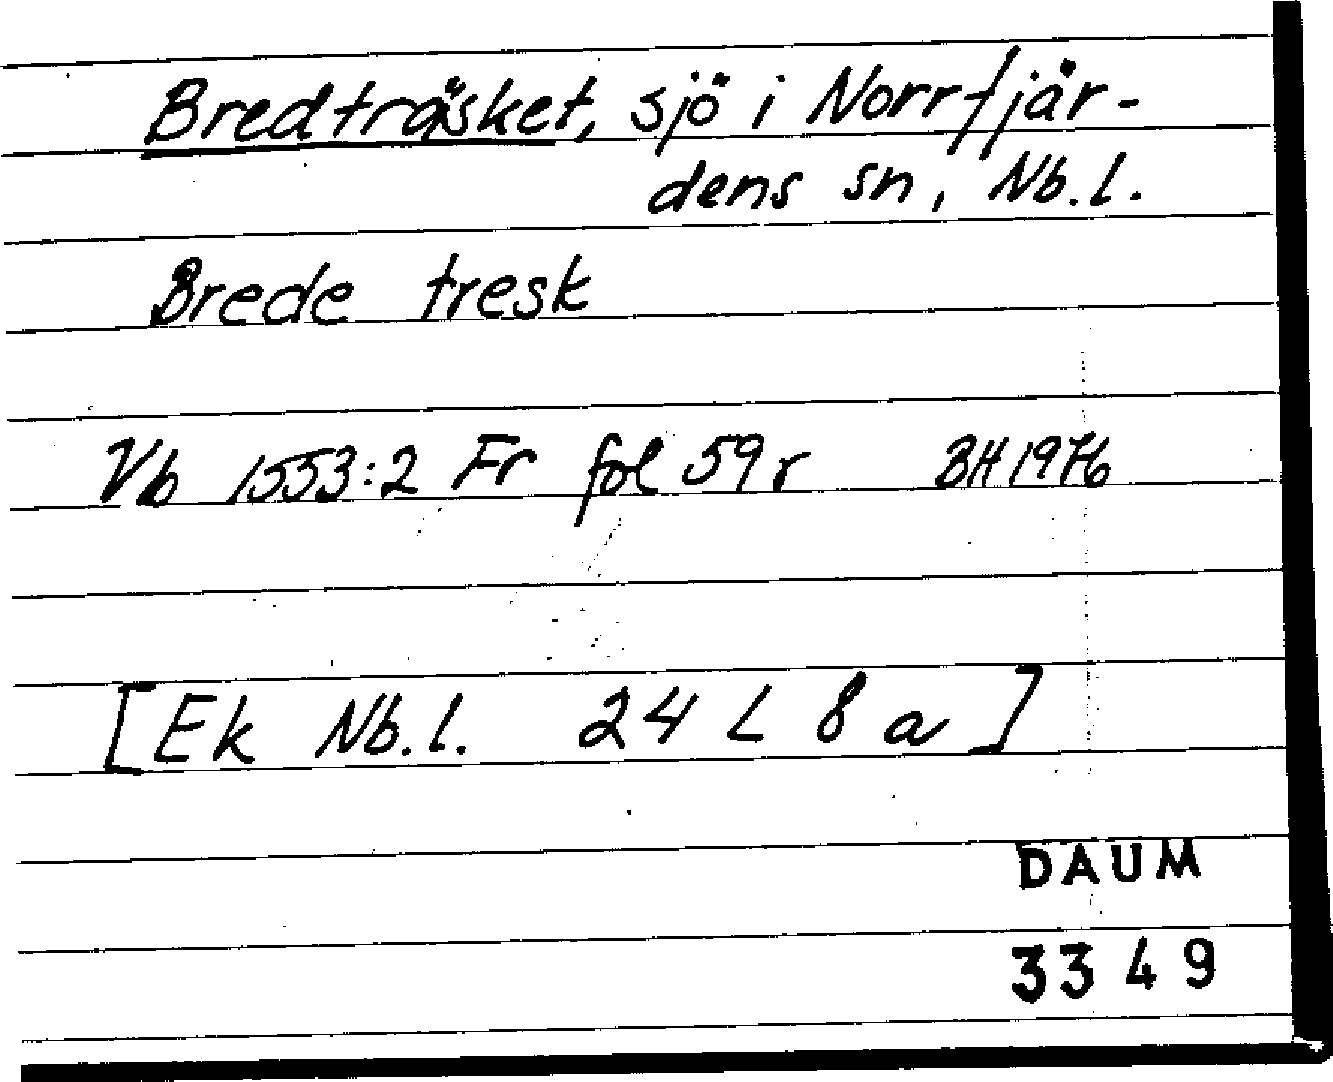 Bredträsket, sjö i Norrfjär-
dens sn, Nb.l.
Brede tresk
Vb 1553:2 Fr fol 59 r BH 1976
[Ek Nb.l. 24 L 8 a]
DAUM
3349